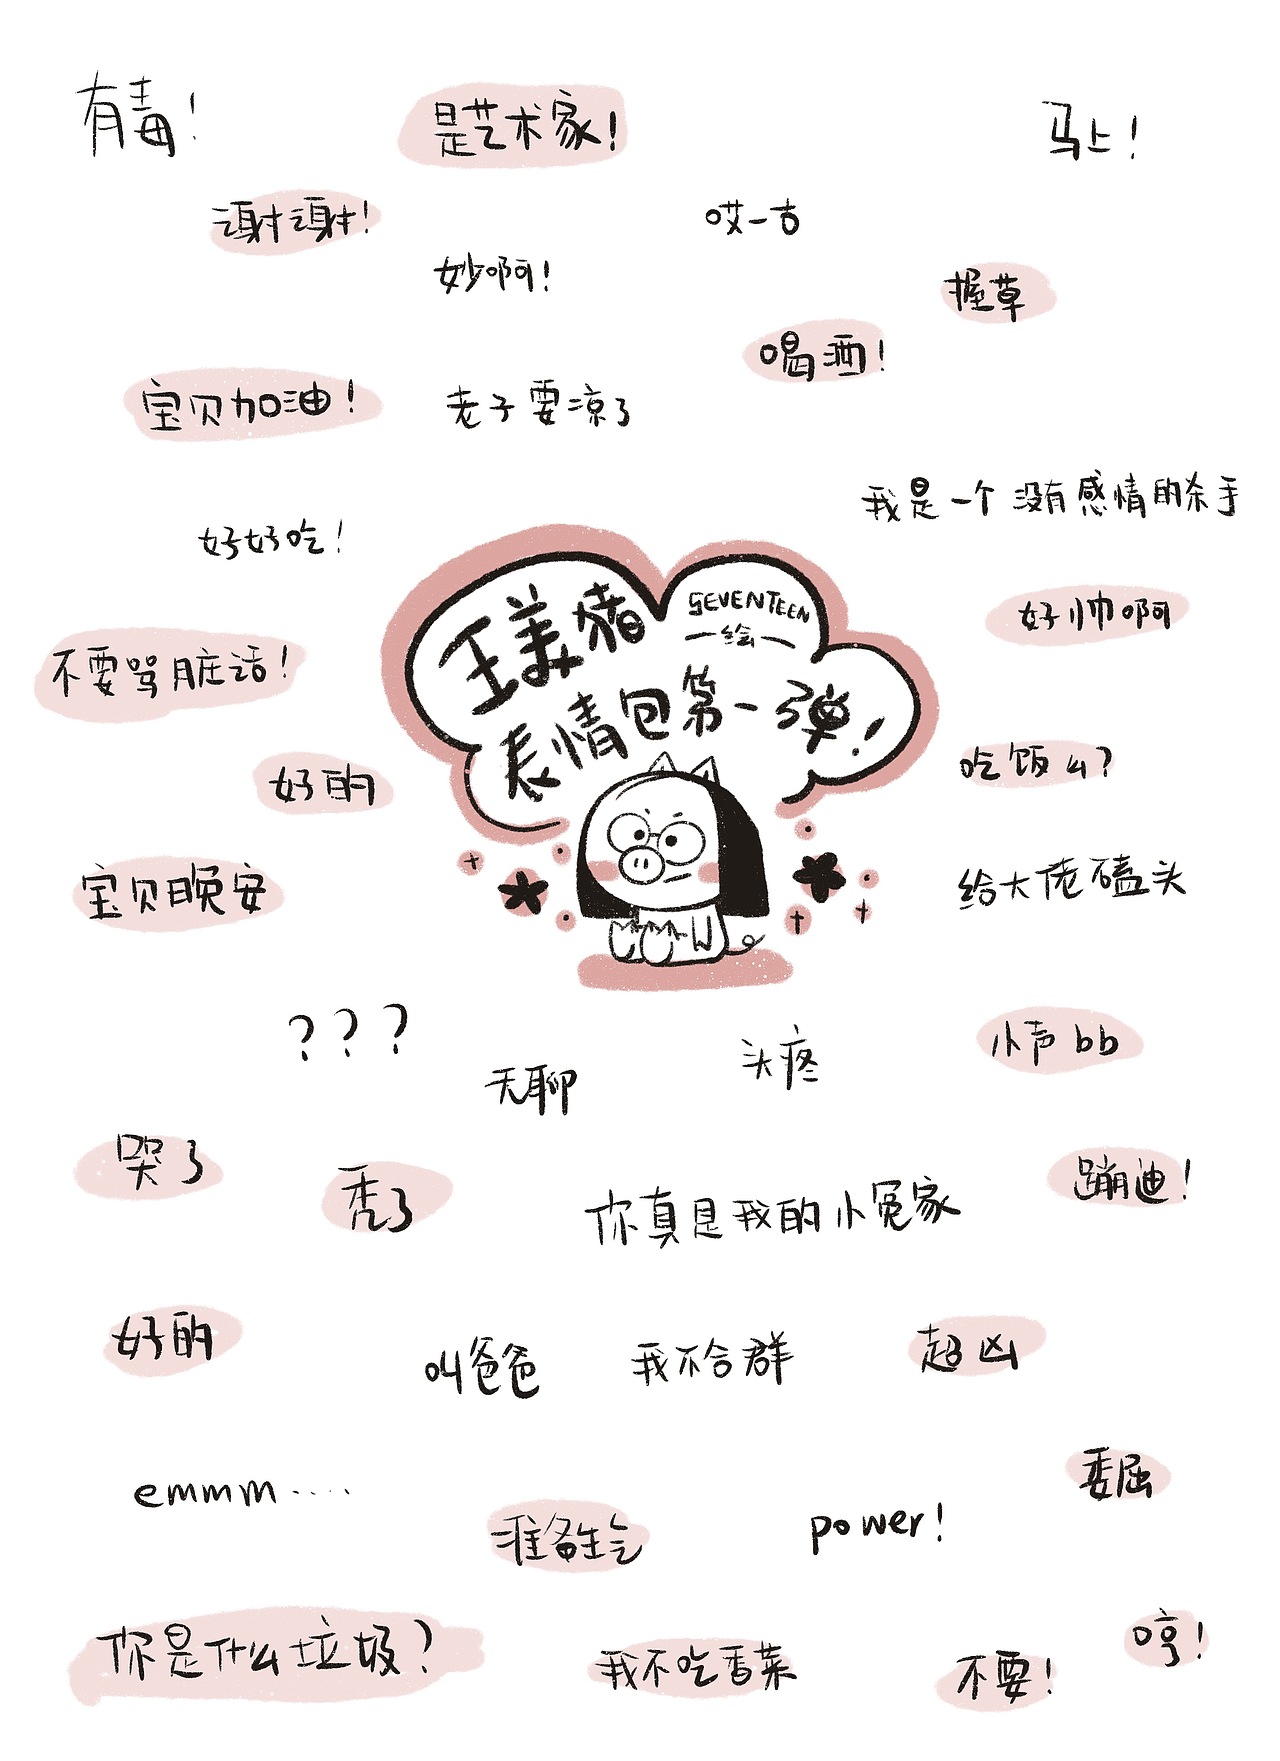 有毒！
是艺术家！
马上！
谢谢！
哎一古
妙啊！
握草
喝酒！
宝贝加油！
老子要凉了
我是一个没有感情的杀手
好好吃！
王美猪
SEVENTEEN
一绘一
表情包第一弹！
好帅啊
不要骂脏话！
好的
吃饭么？
宝贝晚安
给大佬磕头
？？？
无聊
头疼
小声bb
哭了
秃了
你真是我的小冤家
蹦迪！
好的
叫爸爸
我不合群
超凶
emmm....
准备生气
power！
委屈
你是什么垃圾？
我不吃香菜
不要！
哼！